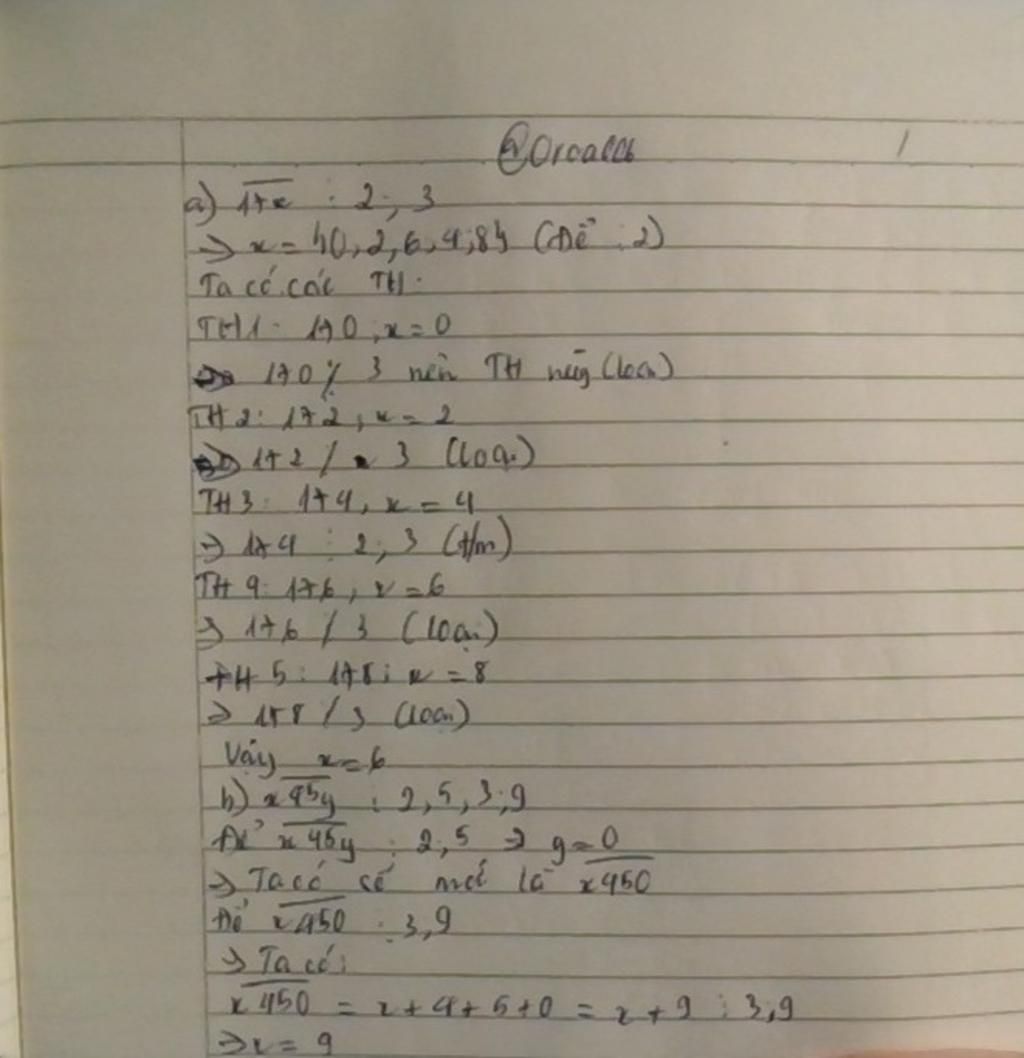 @Orcalab 1
a) 17x ⋮ 2; 3
=> x = {0, 2, 6, 4, 8} (Để ⋮ 2)
Ta có các TH:
TH1: 170, x = 0
=> 170 ⋮̸ 3 nên TH này (loại)
TH2: 172, x = 2
=> 172 / 3 (loại)
TH3: 174, x = 4
=> 174 ⋮ 2; 3 (t/m)
TH4: 176, x = 6
=> 176 / 3 (loại)
TH5: 178; x = 8
=> 178 / 3 (loại)
Vậy x = 6
b) x45y ⋮ 2, 5, 3, 9
Để x45y ⋮ 2, 5 => y = 0
=> Ta có số mới là x450
Để x450 ⋮ 3, 9
=> Ta có:
x450 = x + 4 + 5 + 0 = x + 9 ⋮ 3, 9
=> x = 9